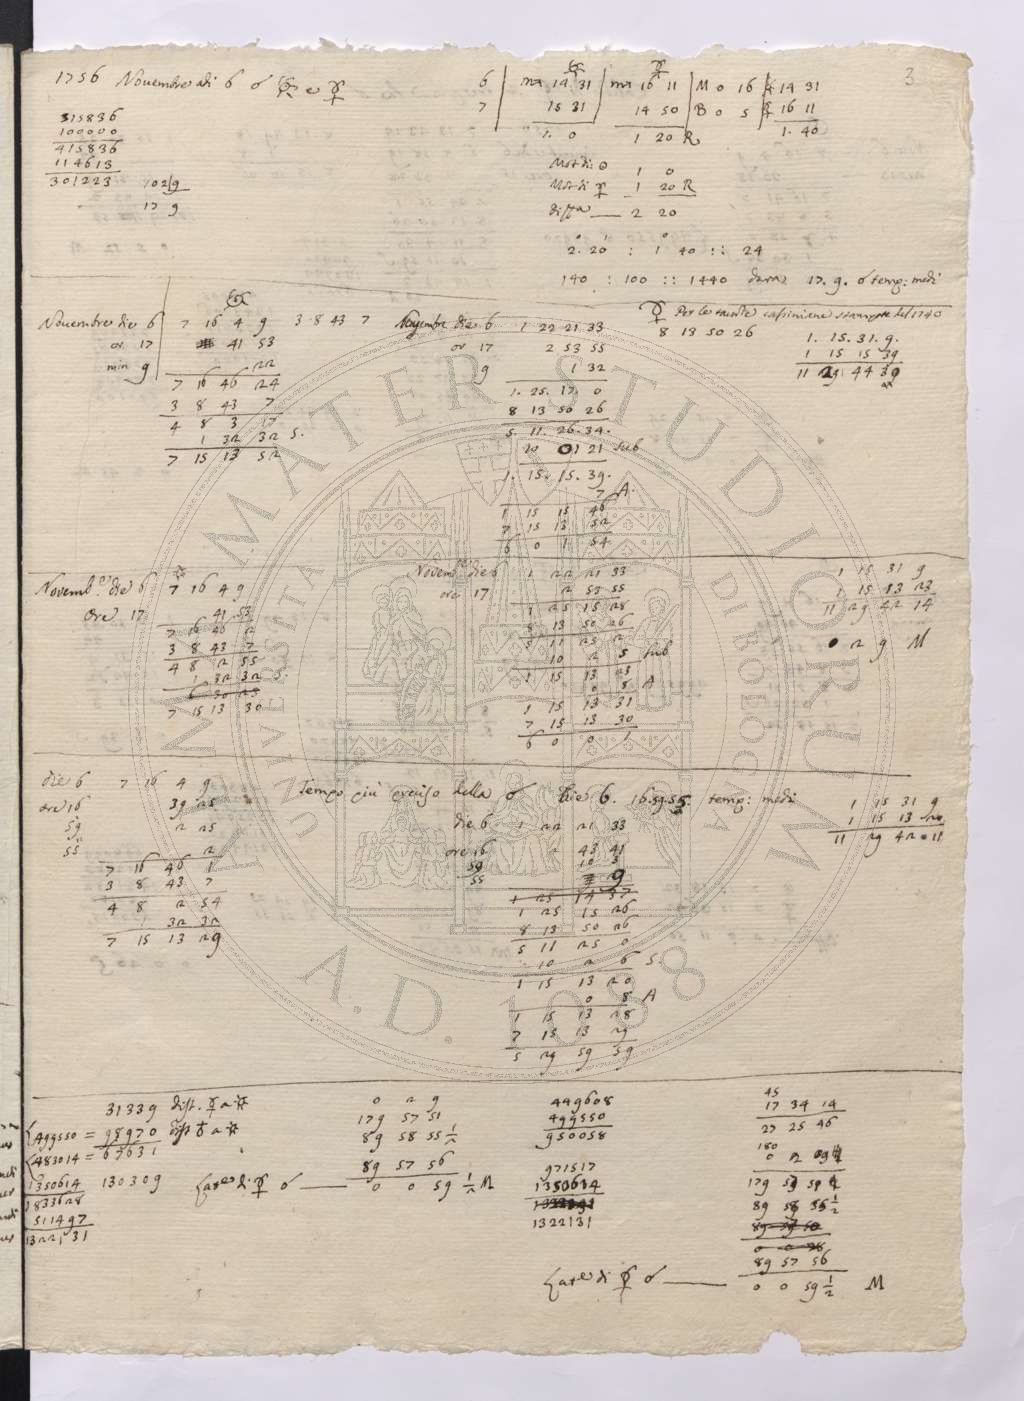 3
1756 Novembre adi 6 ☌ ☼ e ☿
6 | m 14 31 | m 16 11 | M 0 16 | 14 31
7 | 15 31 | 14 50 | B 0 5 | 16 11
1. 0 | 1 20 R | 1. 40
315836
100000
415836
114613
301223 1021g
17 g
Mot di ☉ 1 0
Mot di ☿ 1 20 R
diffa — 2 20
2. 20 : 1 40 :: 24
140 : 100 :: 1440 dara 17. g. ☌ temp: medi
☿ Per le tavole cassiniane stampate del 1740
Novembre die 6 7 16 4 g 3 8 43 7
or. 17 41 53
min g 22
7 16 46 24
3 8 43 7
4 8 3 17
1 32 32 S.
7 15 13 52
Novembre die 6 1 22 21 33 8 13 50 26
or 17 2 53 55
g 1 32
1. 25. 17. 0
8 13 50 26
5. 11. 26. 34.
10 0 1 21 sub
1. 15. 15. 3g.
7 A.
1 15 15 46
7 15 13 52
6 0 1 54
1. 15. 31. g.
1 15 15 3g
11 2g 44 3g
Novemb.e die 6 7 16 4 g
Ore 17 41 53
7 16 46 2
3 8 43 7
4 8 2 55
1 32 32 S.
7 15 13 30
Novemb.e die 6 1 22 21 33
ore 17 2 53 55
1 25 15 28
8 13 50 26
5 11 25 2
10 2 5 sub
1 15 13 23
0 8 A
1 15 13 31
7 15 13 30
6 0 0 1
1 15 31 g
1 15 13 23
11 2g 42 14
0 2 g M
Tempo più preciso della ☌ Die 6. 16.5g.55. temp: medi
die 6 7 16 4 g
ore 16 3g 25
5g 2 25
55 2
7 16 46 1
3 8 43 7
4 8 2 54
1 32 32
7 15 13 2g
die 6 1 22 21 33
ore 16 2 43 41
5g 10 3
55 g
1 25 15 26
8 13 50 26
5 11 25 0
10 2 6 S.
1 15 13 20
0 8 A
1 15 13 28
7 15 13 2g
5 2g 5g 5g
1 15 31 g
1 15 13 20
11 2g 42 11
3133g dist. ☿ a ☼
4gg550 = g8g70 dist ♁ a ☼
483014 = 67631
1350614 1303 0g
1833628
5114g7
1322131
0 2 g
17g 57 51
8g 58 55 ½
8g 57 56
Late di ☿ ☌ — 0 0 5g ½ M
44g608
4gg550
g50058
g71517
1350614
1322131
45
17 34 14
27 25 46
180
17g
8g 58 55 ½
8g 57 56
Late di ☿ ☌ — 0 0 5g ½ M
ALMA MATER STUDIORUM
UNIVERSITA DI BOLOGNA
A.D. 1088